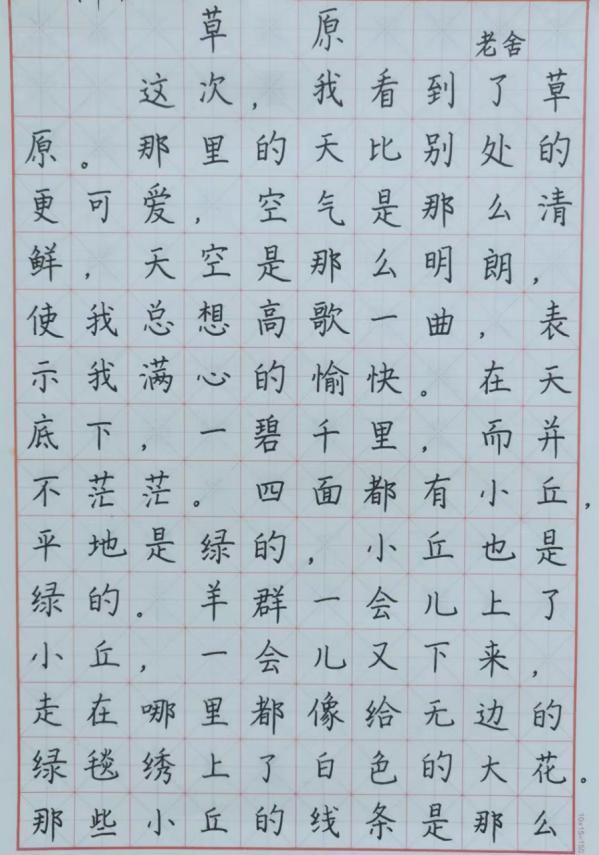 草原
老舍
这次，我看到了草
原。那里的天比别处的
更可爱，空气是那么清
鲜，天空是那么明朗，
使我总想高歌一曲，表
示我满心的愉快。在天
底下，一碧千里，而并
不茫茫。四面都有小丘，
平地是绿的，小丘也是
绿的。羊群一会儿上了
小丘，一会儿又下来，
走在哪里都像给无边的
绿毯绣上了白色的大花。
那些小丘的线条是那么